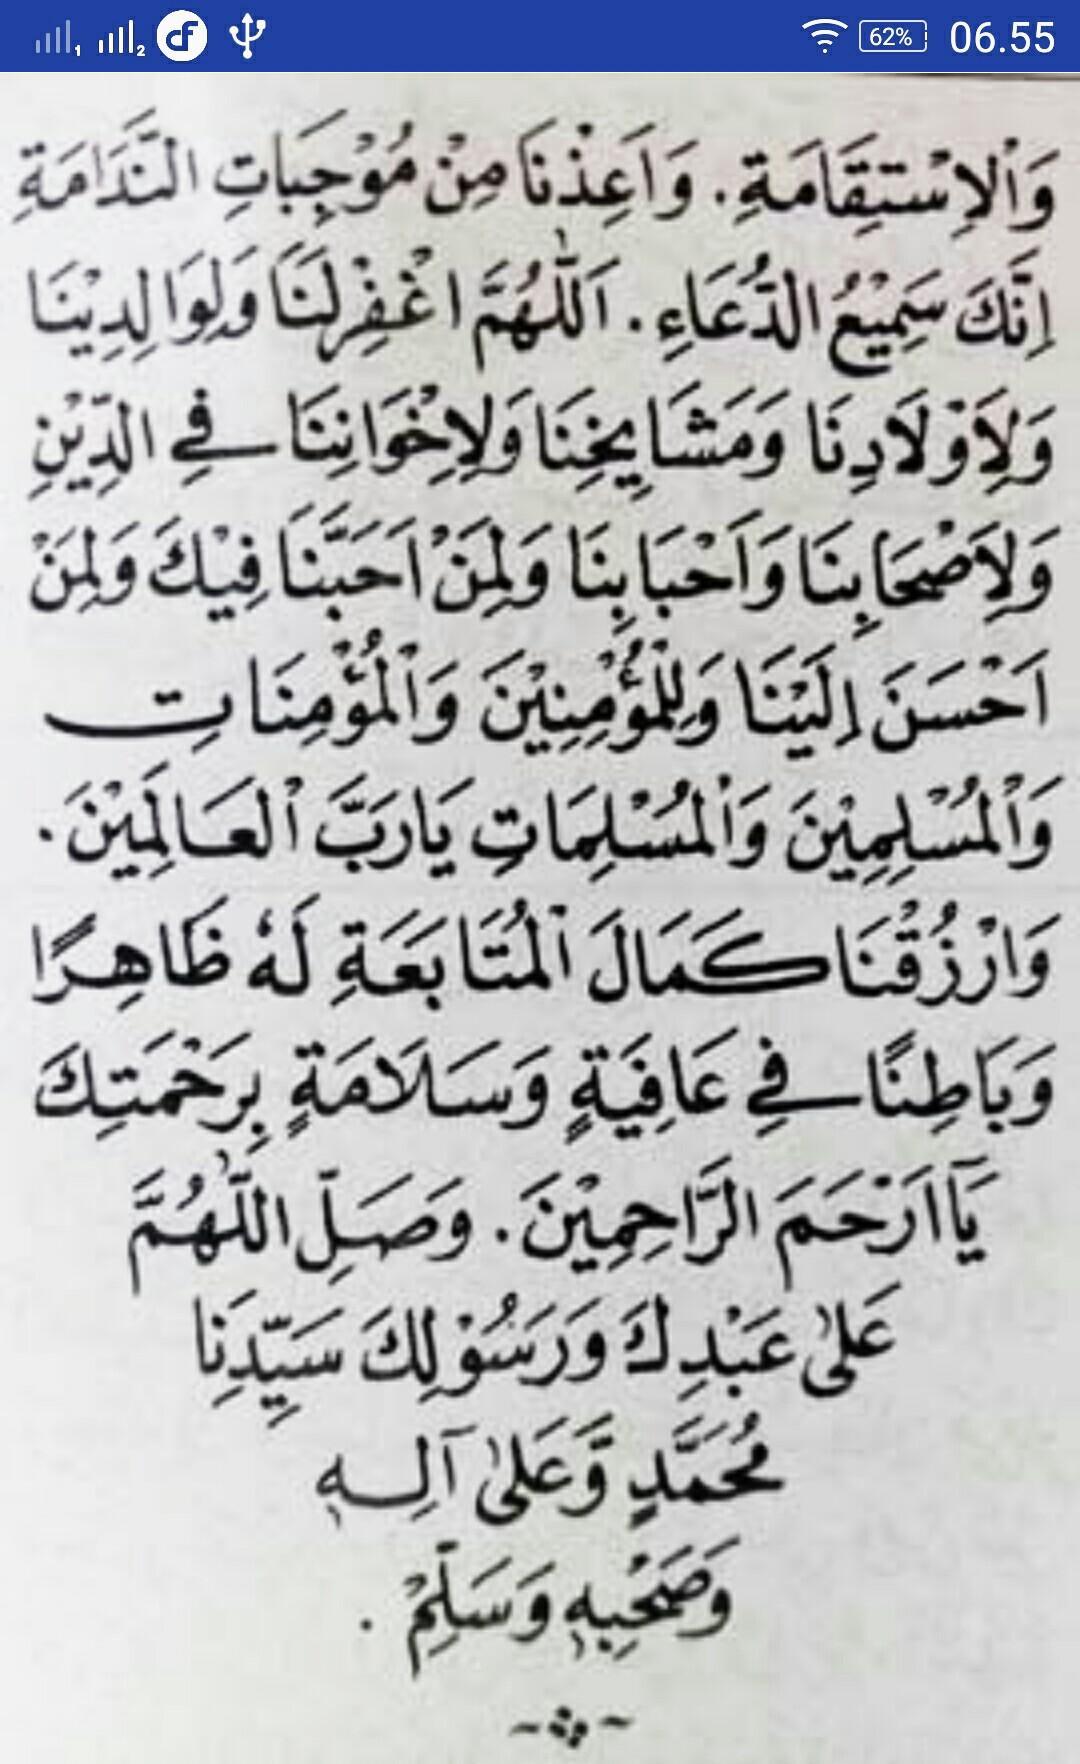 1 2 df 62% 06.55
وَاْلاِسْتِقَامَةِ. وَاَعِذْنَا مِنْ مُوْجِبَاتِ النَّدَامَةِ
اِنَّكَ سَمِيْعُ الدُّعَاءِ. اَللّٰهُمَّ اغْفِرْلَنَا وَلِوَالِدِيْنَا
وَلِاَوْلَادِنَا وَمَشَايِخِنَا وَلِاِخْوَانِنَا فِي الدِّيْنِ
وَلِاَصْحَابِنَا وَاَحْبَابِنَا وَلِمَنْ اَحَبَّنَا فِيْكَ وَلِمَنْ
اَحْسَنَ اِلَيْنَا وَلِلْمُؤْمِنِيْنَ وَاْلمُؤْمِنَاتِ
وَاْلمُسْلِمِيْنَ وَاْلمُسْلِمَاتِ يَارَبَّ اْلعَالَمِيْنَ.
وَارْزُقْنَا كَمَالَ اْلمُتَابَعَةِ لَهُ ظَاهِرًا
وَبَاطِنًا فِي عَافِيَةٍ وَسَلَامَةٍ بِرَحْمَتِكَ
يَآاَرْحَمَ الرَّاحِمِيْنَ. وَصَلِّ اللّٰهُمَّ
عَلىٰ عَبْدِكَ وَرَسُوْلِكَ سَيِّدِنَا
مُحَمَّدٍ وَّعَلىٰ آلِهٖ
وَصَحْبِهٖ وَسَلِّمْ.